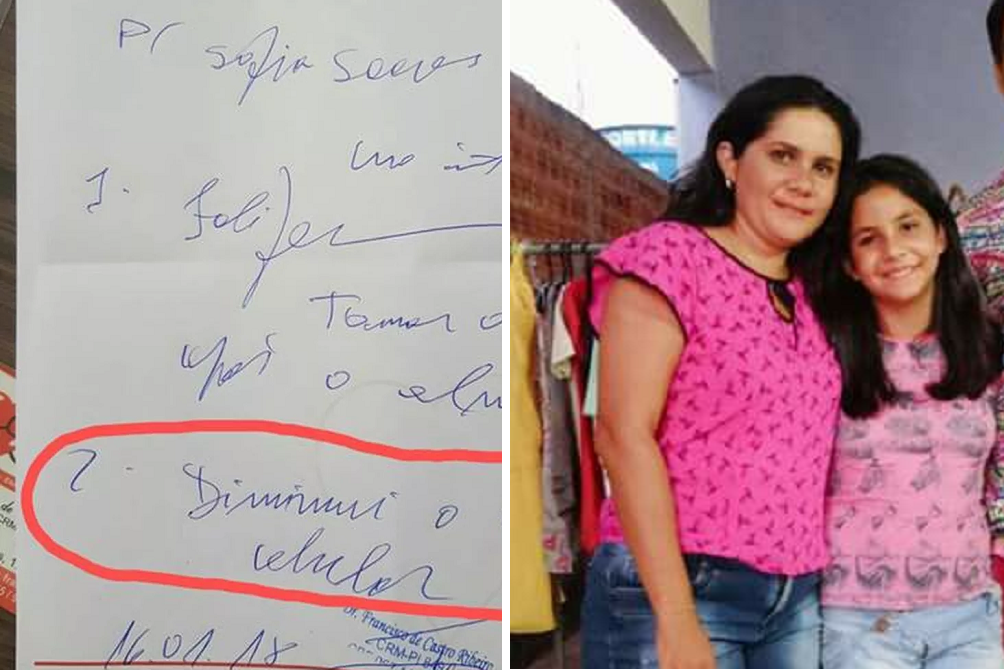 P/ Sofia Soares
uso int
1. Folifer
Tomar
após o
2. Diminui o
celular
16.01.18
Dr. Francisco de Castro Ribeiro
CRM-PI
ORTLE